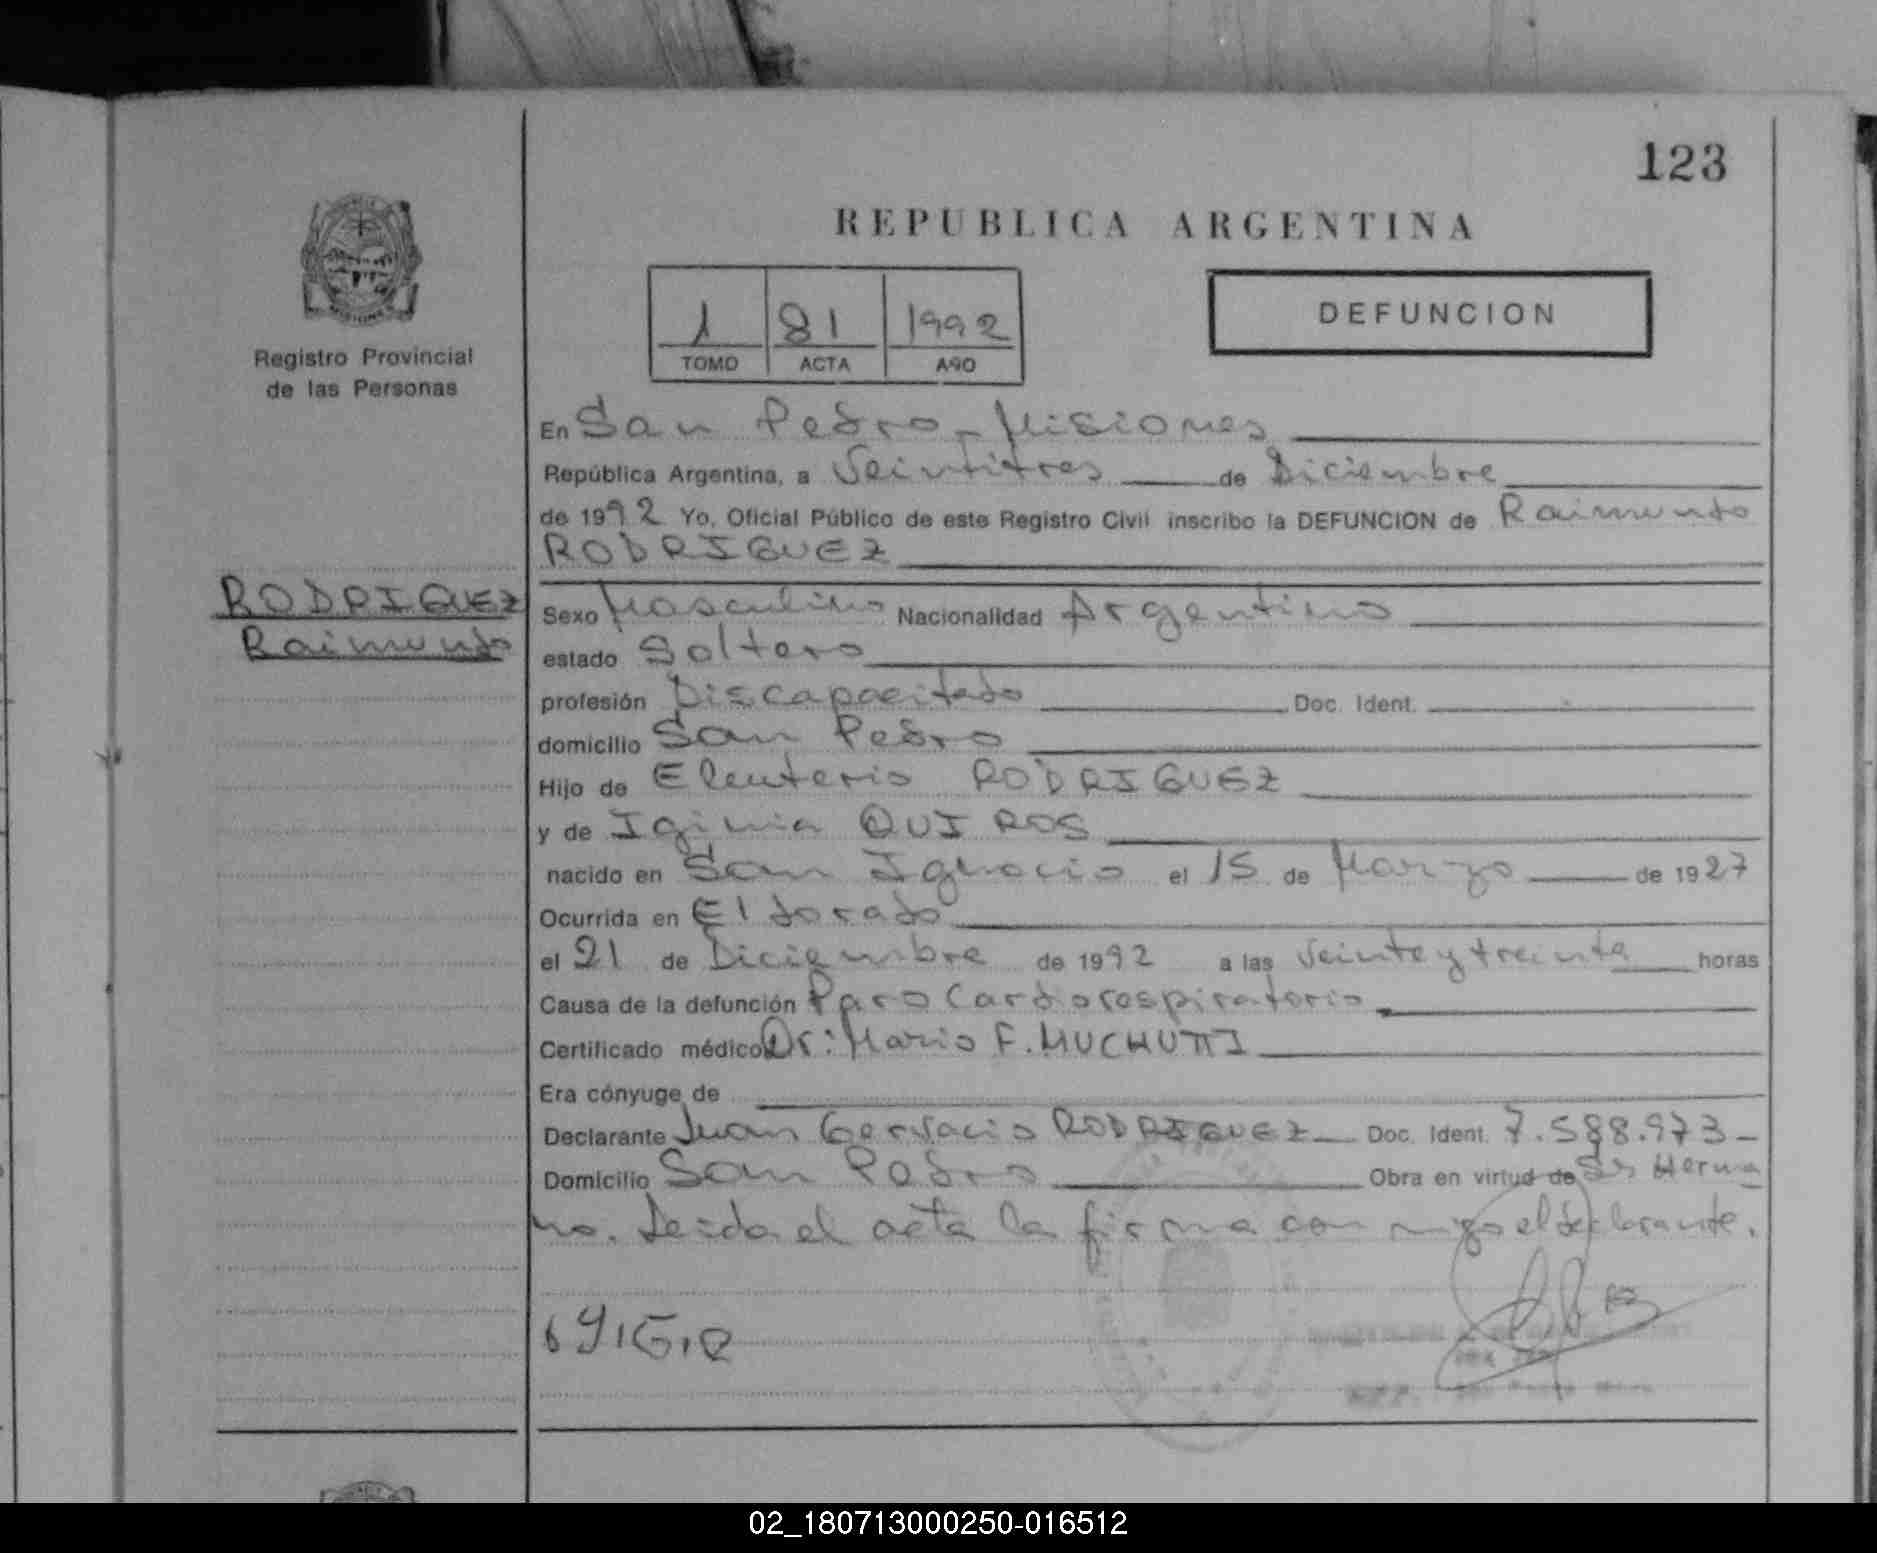 123
REPUBLICA ARGENTINA
1 81 1992
TOMO ACTA AÑO
DEFUNCION
Registro Provincial
de las Personas
En San Pedro - Misiones
República Argentina, a Veintitres de Diciembre
de 1992 Yo, Oficial Público de este Registro Civil inscribo la DEFUNCION de Raimundo
RODRIGUEZ
RODRIGUEZ
Raimundo
Sexo Masculino Nacionalidad Argentino
estado Soltero
profesión Discapacitado Doc. Ident.
domicilio San Pedro
Hijo de Eleuterio RODRIGUEZ
y de Iginia QUIROS
nacido en San Ignacio el 15 de Marzo de 1927
Ocurrida en Eldorado
el 21 de Diciembre de 1992 a las Veinte y treinta horas
Causa de la defunción Paro Cardiorespiratorio
Certificado médico Dr: Mario F. MUCHUTTI
Era cónyuge de
Declarante Juan Gervacio RODRIGUEZ Doc. Ident. 7.588.973-
Domicilio San Pedro Obra en virtud de Ser Herma
no. Leida el acta la firma con migo el declarante.
02_180713000250-016512